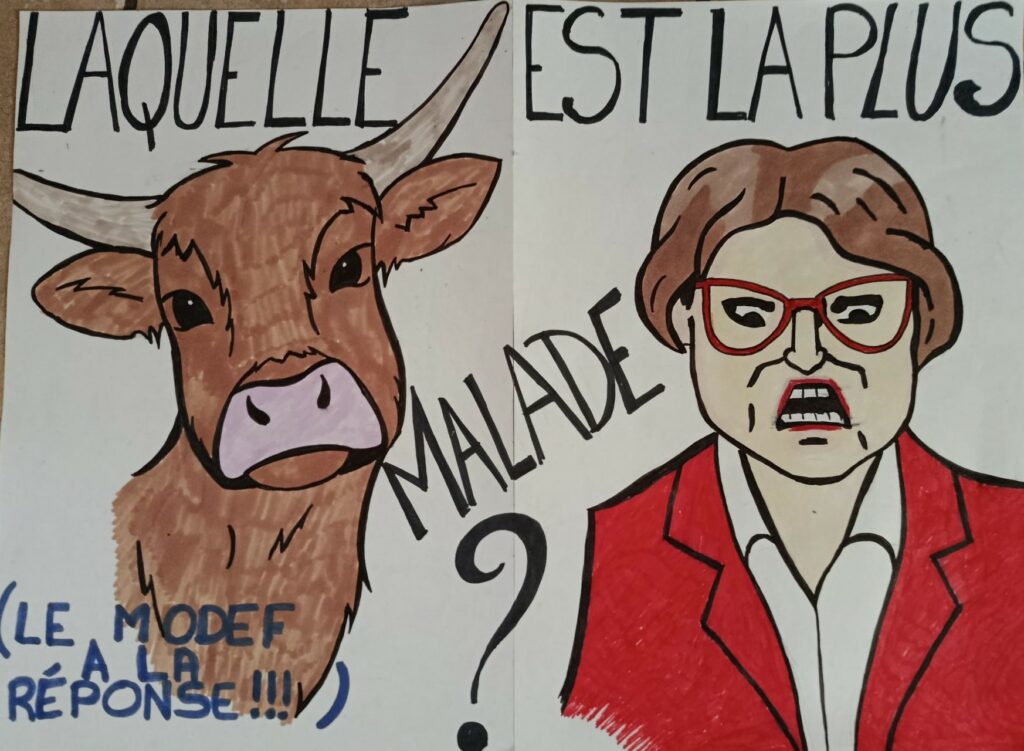 LAQUELLE EST LA PLUS
MALADE
?
(LE MODEF
A LA
RÉPONSE !!!)